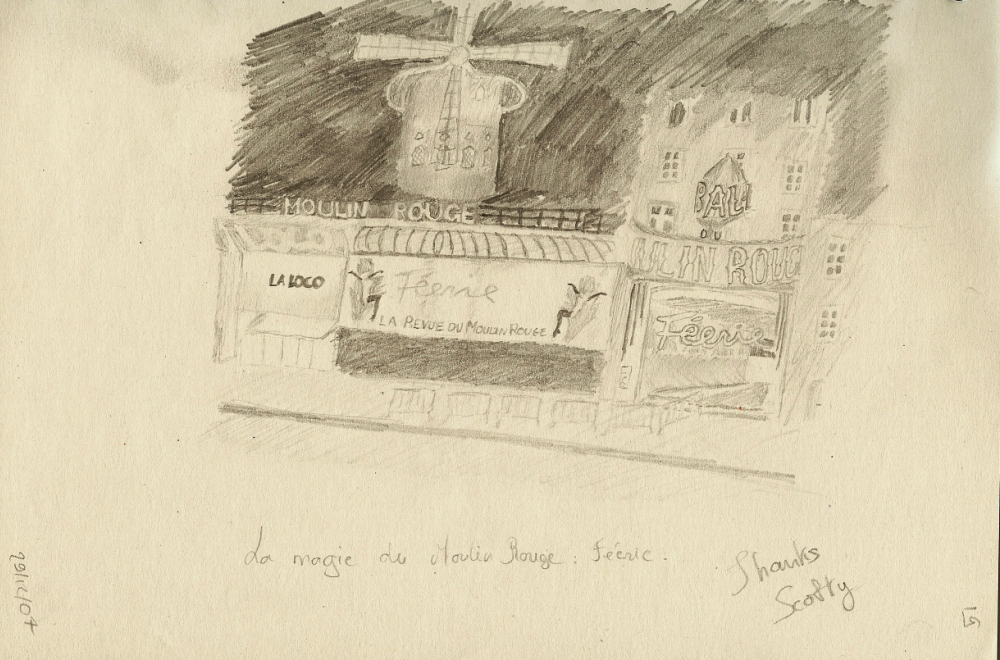 MOULIN ROUGE
BAL
DU
ULIN ROUG
LA LOCO
Féerie
LA REVUE DU MOULIN ROUGE
Féerie
La magie du Moulin Rouge : Féerie.
Thanks
Scotty
29/12/07